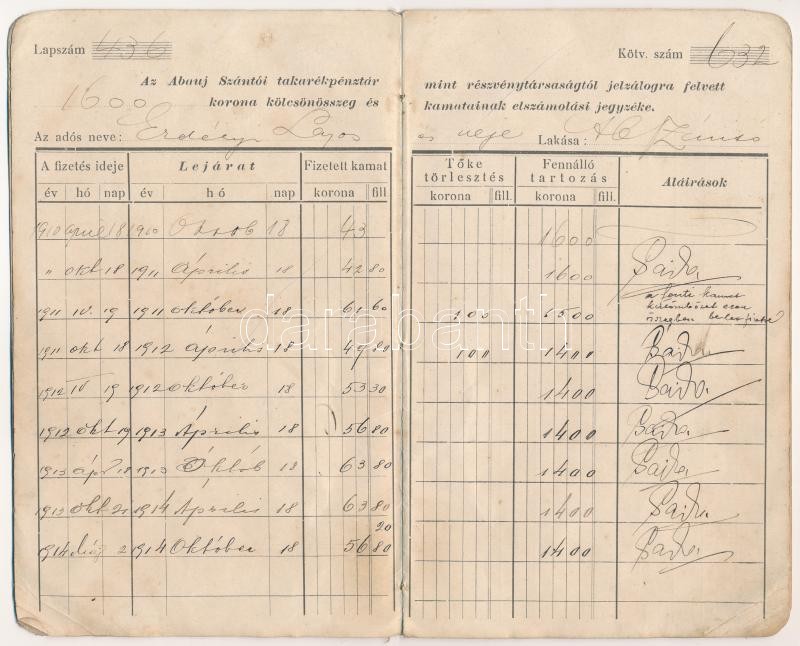 Lapszám 436
Kötv. szám 632
Az Abauj Szántói takarékpénztár
mint részvénytársaságtól jelzálogra felvett
1600 korona kölcsönösszeg és
kamatainak elszámolási jegyzéke.
Az adós neve: Erdélyi Lajos
és neje Lakása: A Szántó
A fizetés ideje Lejárat Fizetett kamat Tőke törlesztés Fennálló tartozás Aláirások
év hó nap év hó nap korona fill. korona fill. korona fill.
1910 april 18 1910 Octob 18 43 1600
" okt 18 1911 Április 18 42 80 1600 Bajka
1911 IV. 19 1911 október 18 61 60 100 1500 a fenti kamat
1911 okt 18 1912 Április 18 49 80 100 1400 Bajka
1912 IV 19 1912 október 18 53 30 1400 Bajka
1912 okt 19 1913 Április 18 56 80 1400 Bajka
1913 ápr 18 1913 Októb 18 63 80 1400 Bajka
1913 okt 21 1914 Április 18 63 80 1400 Bajka
20
1914 Máj 2 1914 Október 18 56 80 1400 Bajka
darabanth